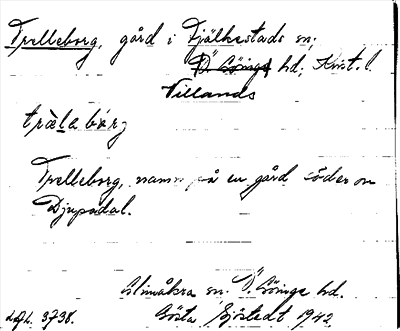 Trelleborg, gård i Fjälkestads sn;
Ö. Göinge hd, Krist. l.
Villands
träla bórg
Trelleborg, namn på en gård söder om
Djupadal.
Glimåkra sn. Ö. Göinge hd.
Gösta Sjöstedt 1942.
3738.